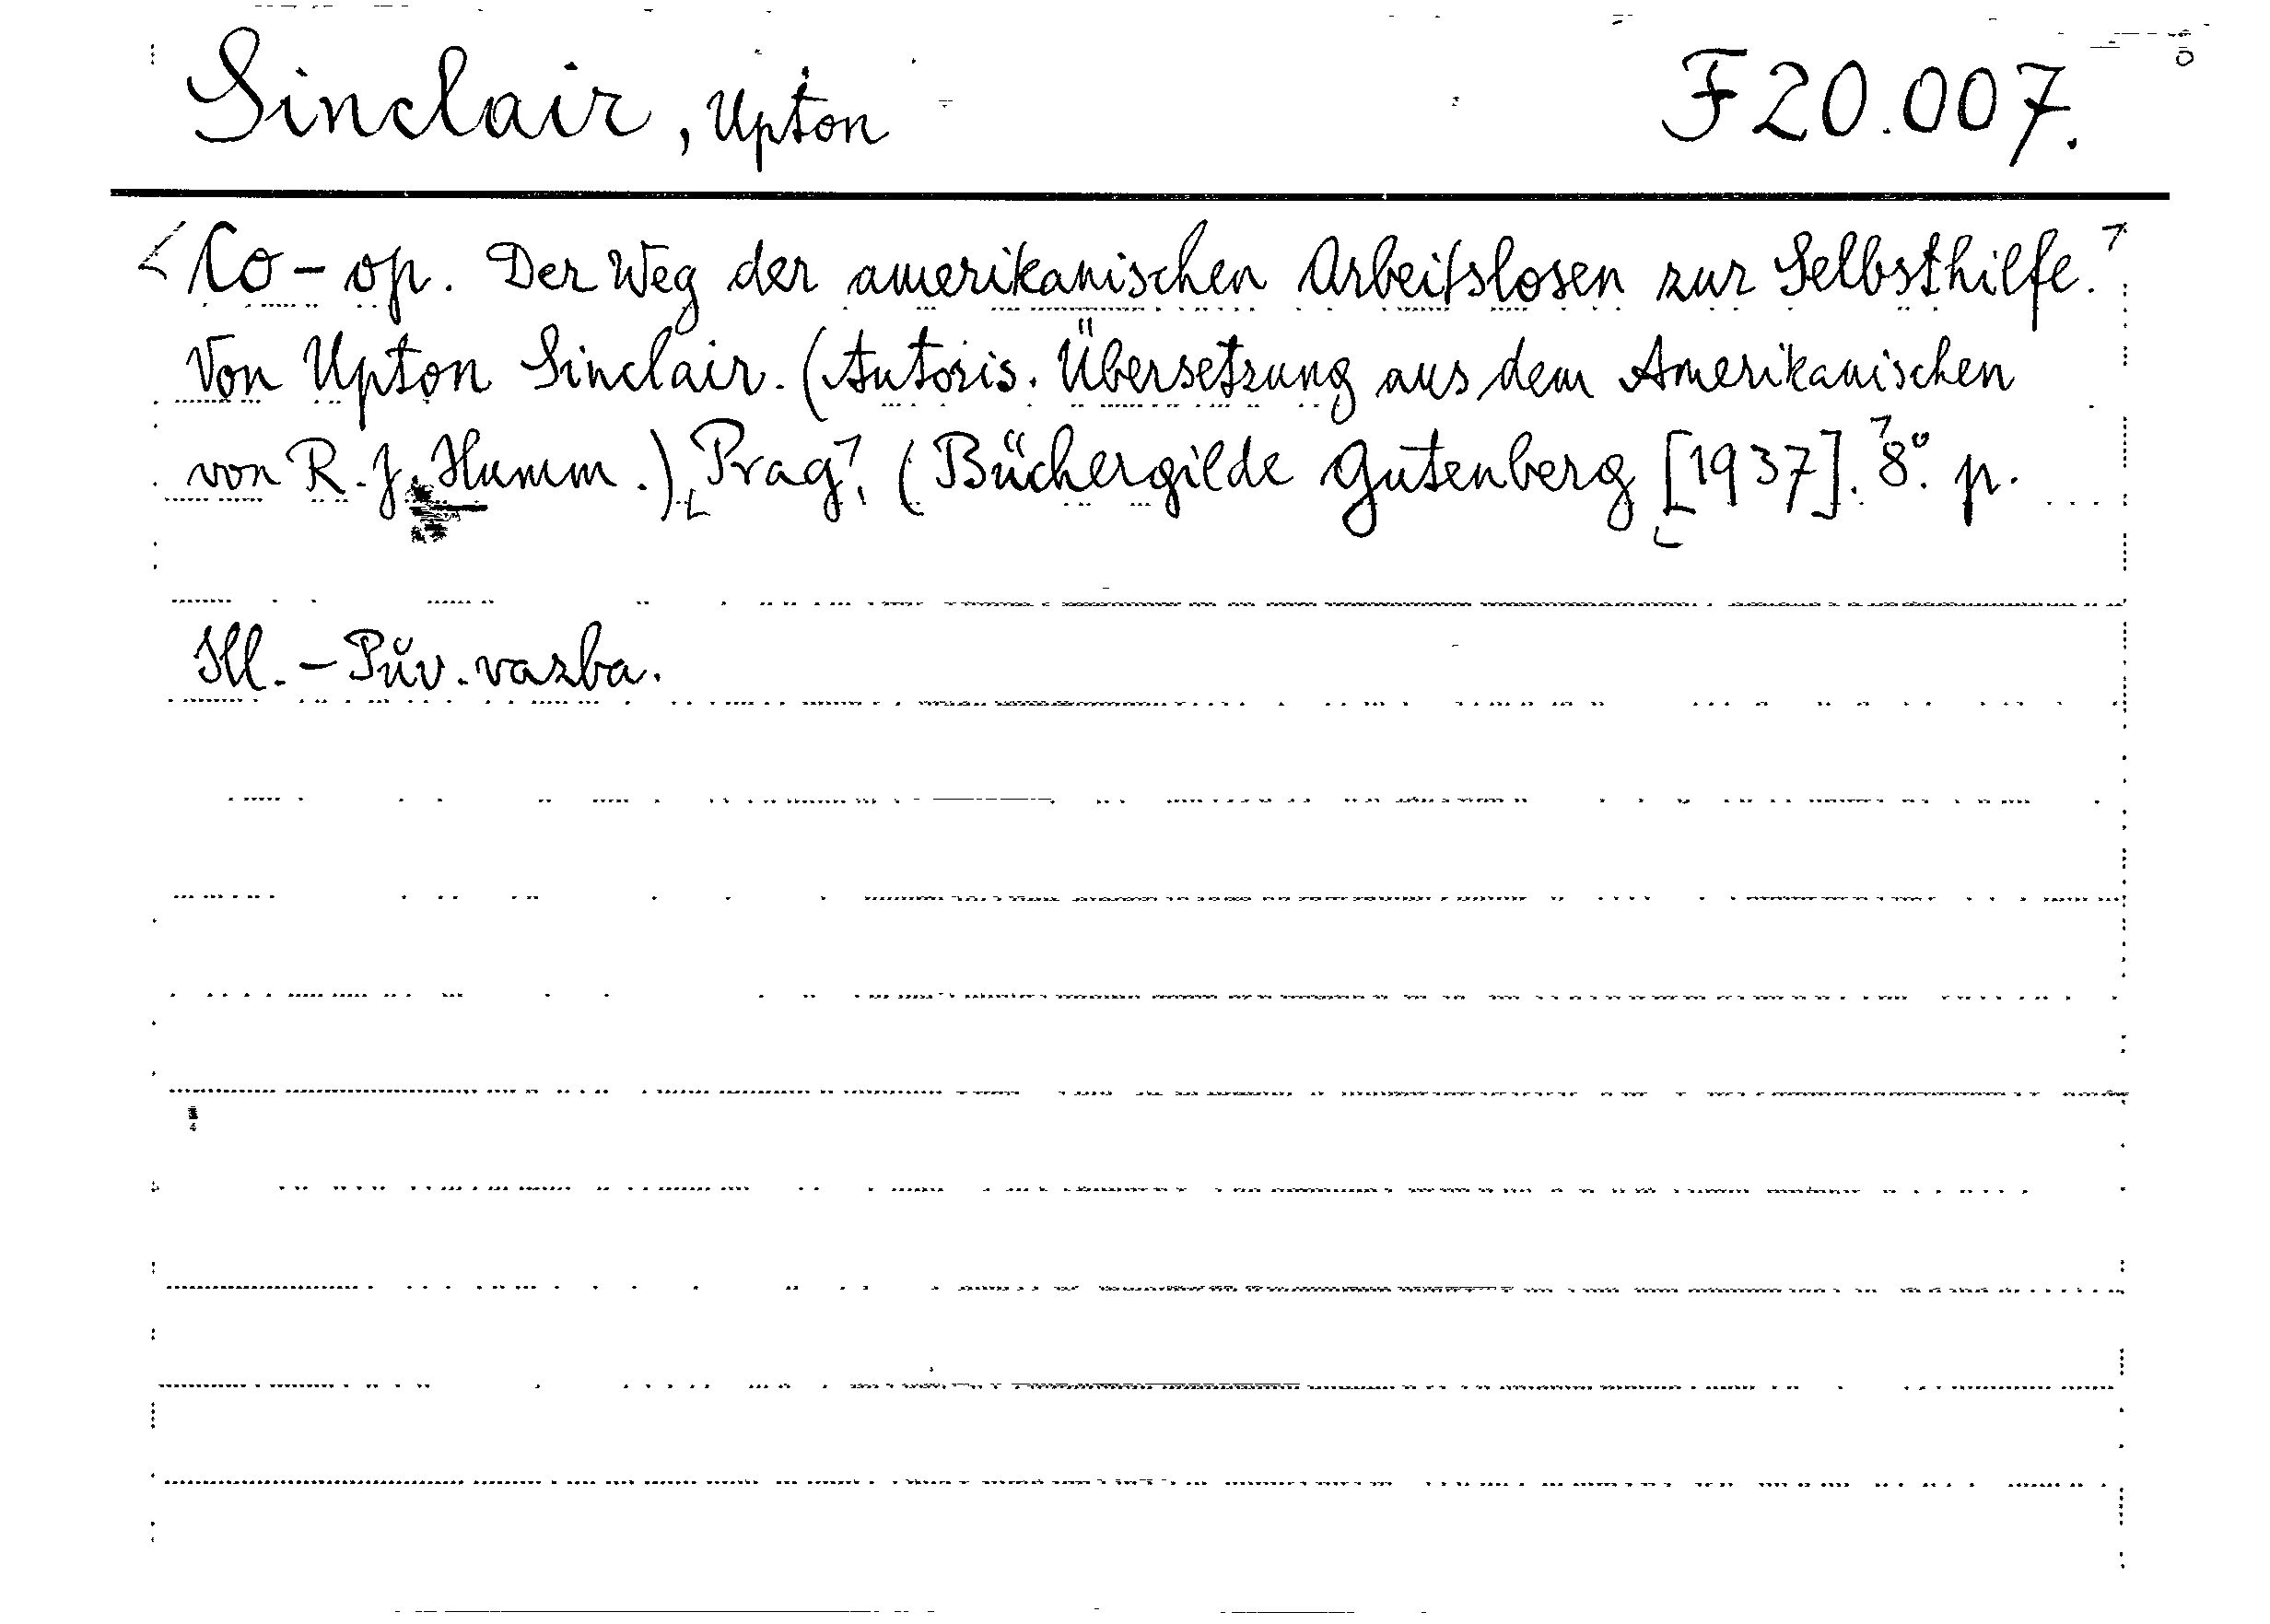 Sinclair, Upton F 20.007.
Co-op. Der Weg der amerikanischen Arbeitslosen zur Selbsthilfe.
Von Upton Sinclair. (Autoris. Übersetzung aus dem Amerikanischen
von R. J. Humm.) Prag, (Büchergilde Gutenberg [1937]. 8°. p.
Ill. - Pův. vazba.